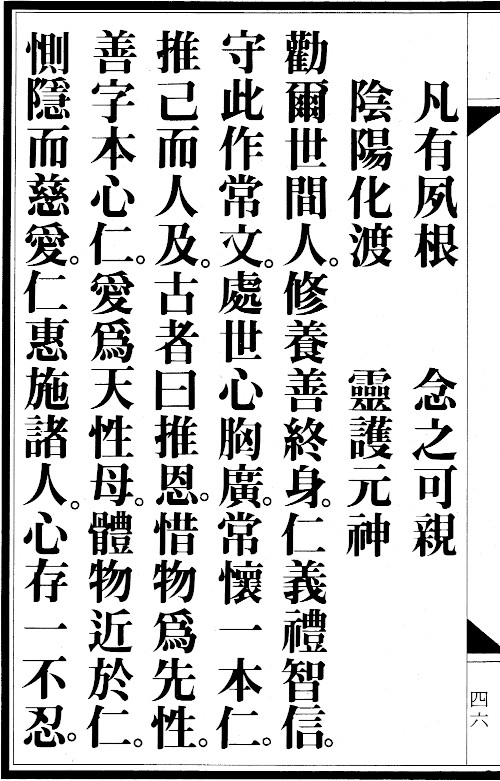 凡有夙根　念之可親
陰陽化渡　靈護元神
勸爾世間人。修養善終身。仁義禮智信。
守此作常文。處世心胸廣。常懷一本仁。
推己而人及。古者曰推恩。惜物爲先性。
善字本心仁。愛爲天性母。體物近於仁。
惻隱而慈愛。仁惠施諸人。心存一不忍。
四六